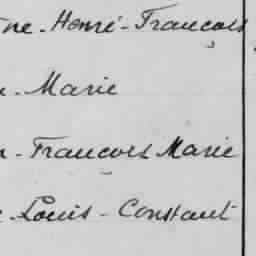 ne - Henri - Francois
- Marie
- Francois Marie
Louis - Constant